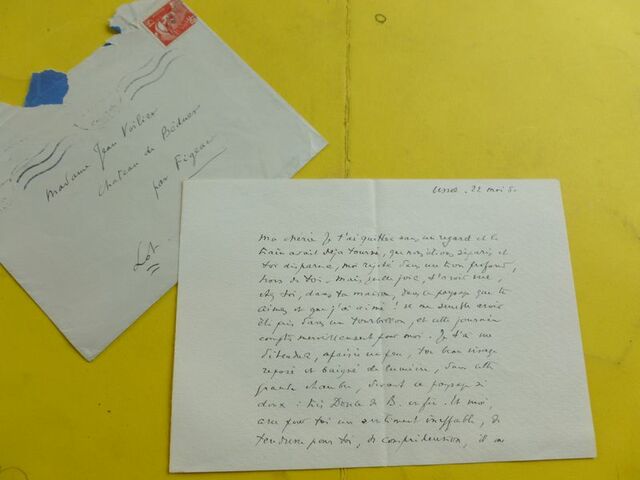 Madame Jean Voilier
Chateau de Béduer
par Figeac
Lot
22 mai 50
Ma chérie je t'ai quittée sans un regard et le
train avait déjà tourné, que nous étions séparés et
toi disparue, moi rejeté dans un trou profond,
hors de toi. Mais quelle joie, t'avoir vue
chez toi, dans ta maison, dans ce paysage que tu
aimes et que j'ai aimé ! Il me semble avoir
été pris dans un tourbillon, et cette journée
compte merveilleusement pour moi. Je t'ai vue
détendue, apaisée un peu, ton beau visage
reposé et baigné de lumière, dans cette
grande chambre, devant ce paysage si
doux : de B. enfin. Et moi,
avec pour toi un sentiment ineffable, de
tendresse pour toi, de compréhension, il